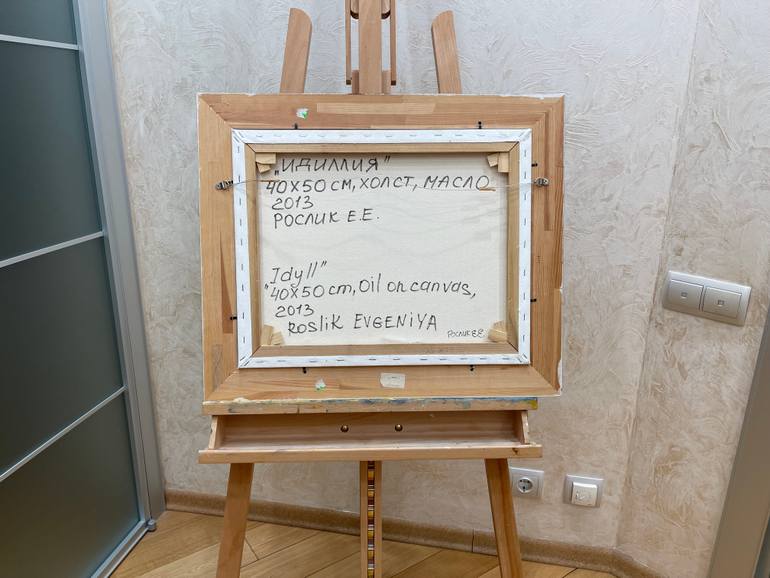 „ИДИЛЛИЯ"
40X50 СМ, ХОЛСТ, МАСЛО
2013
РОСЛИК Е.Е.
"Idyll"
40X50 cm, Oil on canvas,
2013
ROSLIK EVGENIYA
РОСЛИК Е.Е.